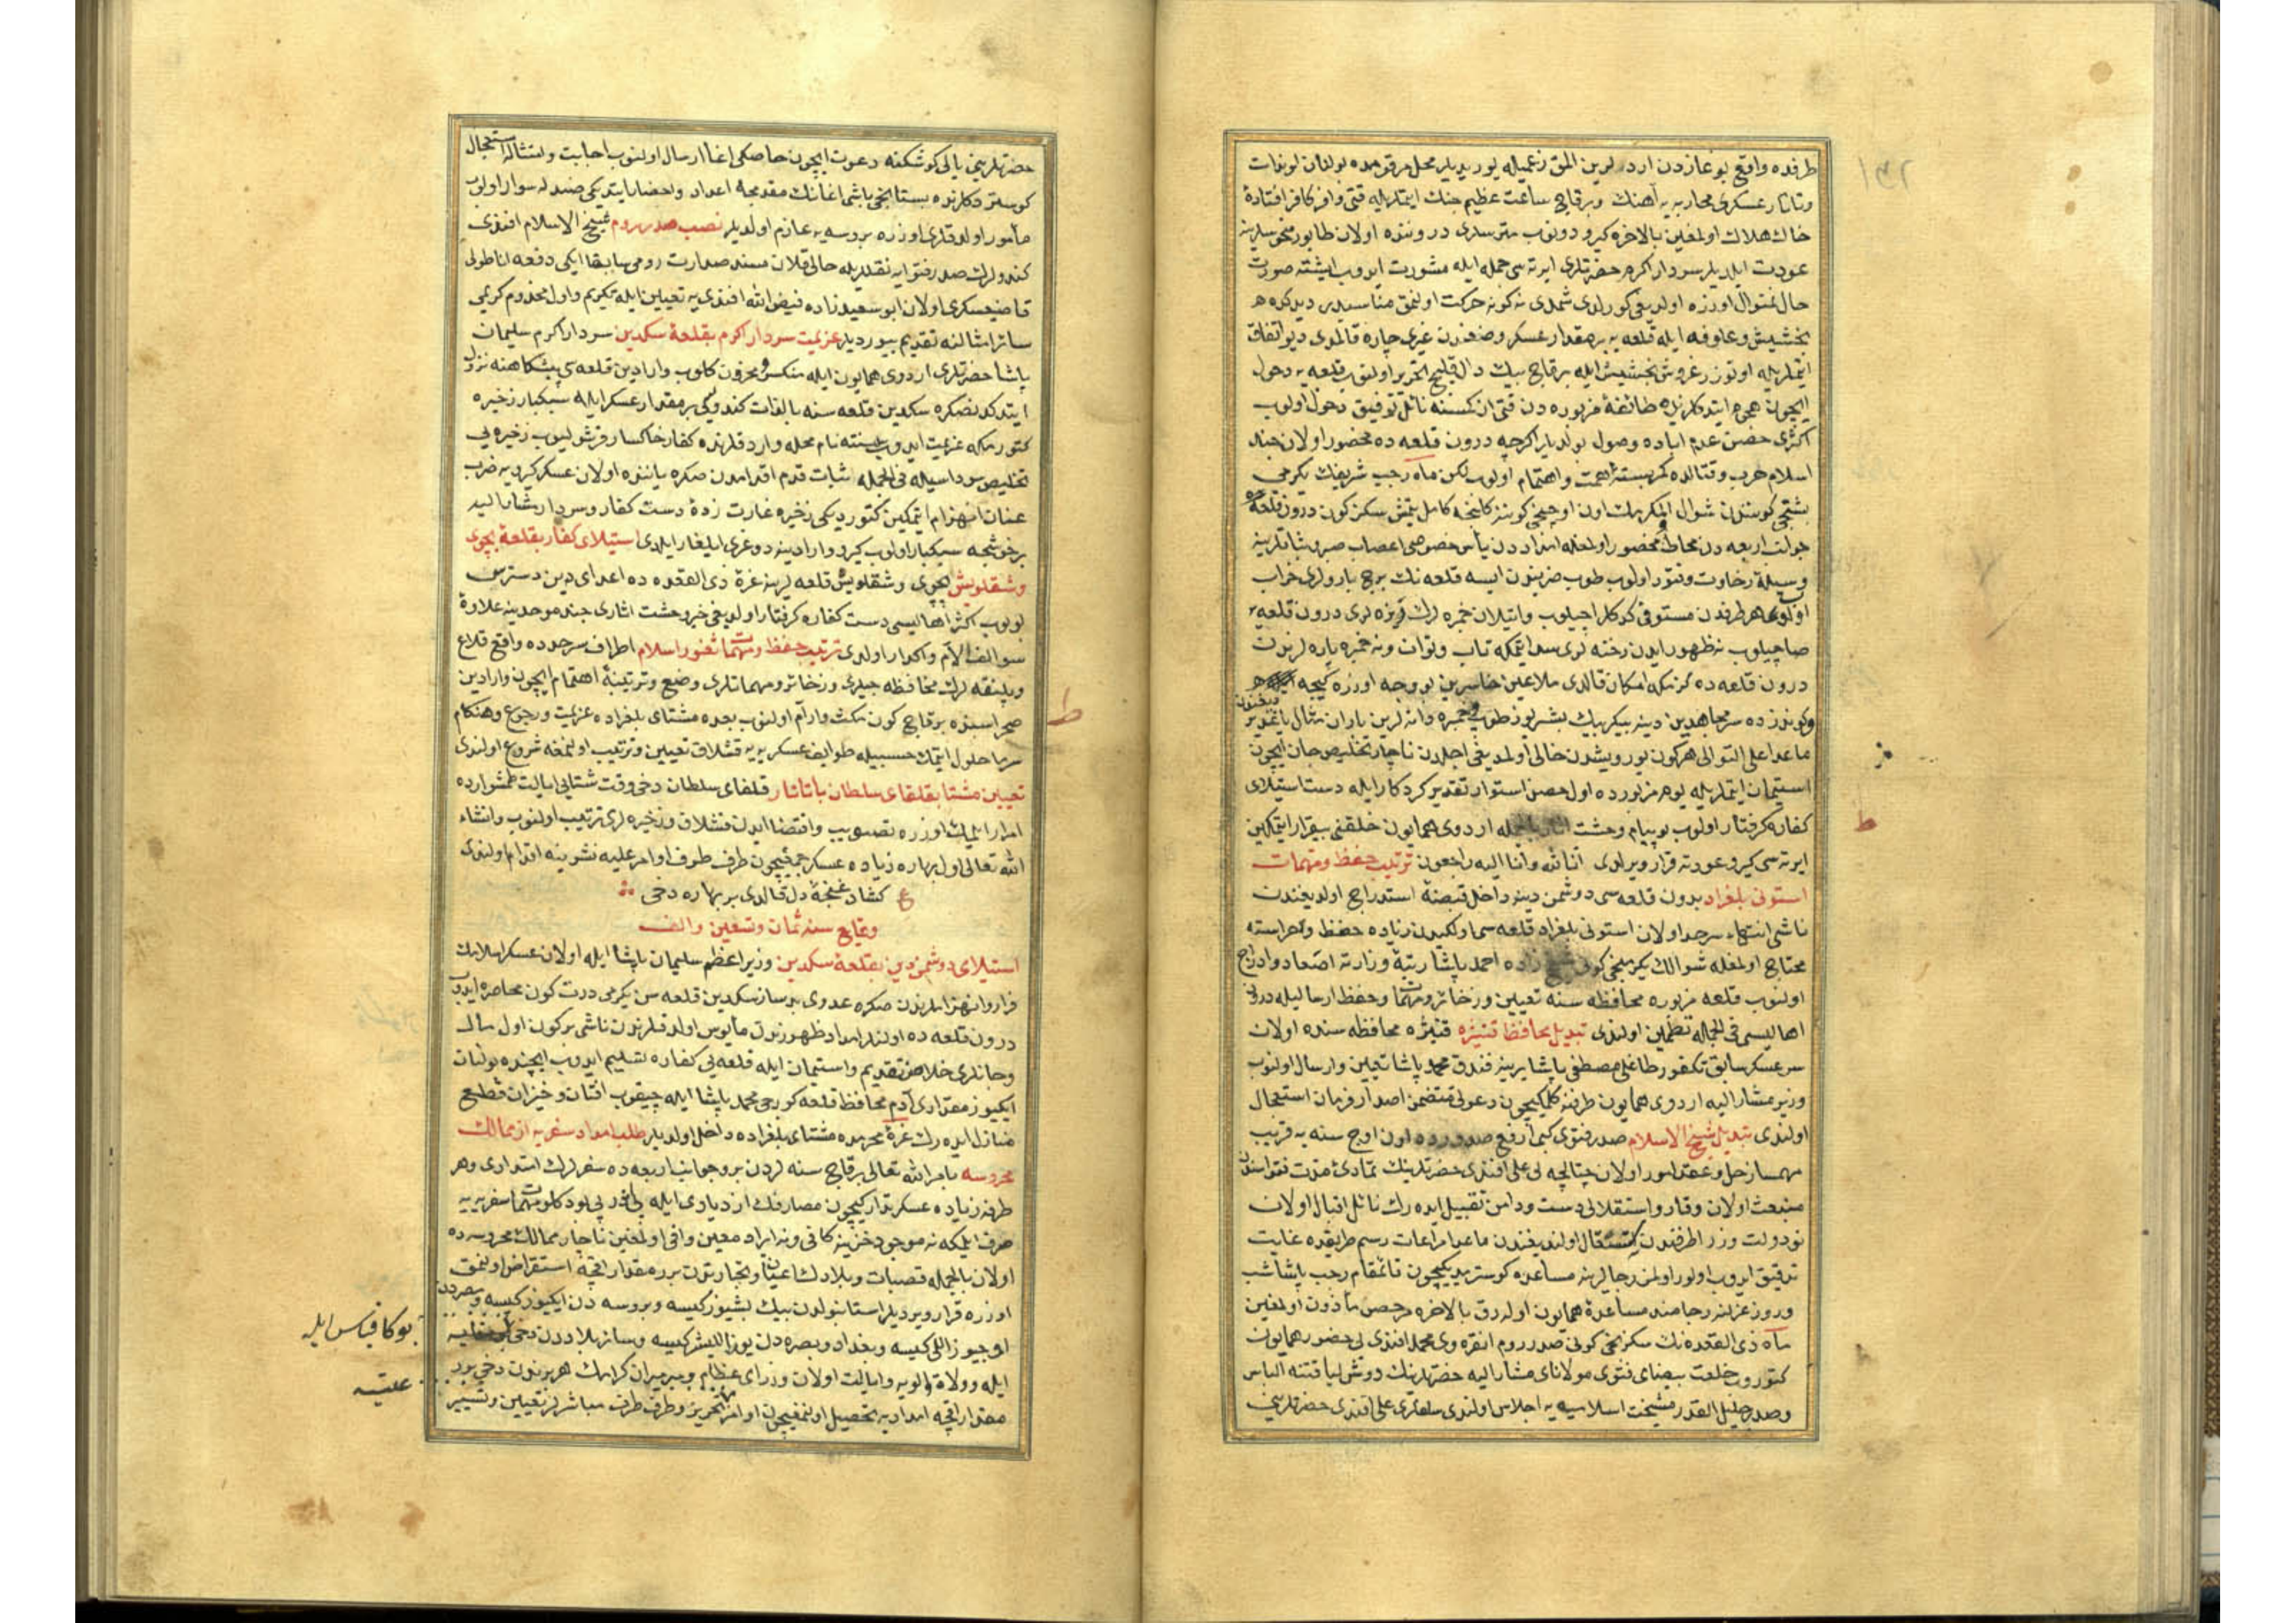 طرفده واقع بوغازدن اردلرين المق زعميله يوريديلر محل مرقومده بولنان لوندات
وتاتار عسكرى محاربه يه آهنك وبرقاچ ساعت عظيم جنك ايتملريله قتى وافر كافر افتادهٔ
خاك هلاك اولمغين بالاخره كيرو دونوب مترسلرى دروننده اولان طابور منحوسلرينه
عودت ايلديلر سردار اكرم حضرتلرى ايرته سى جمله ايله مشورت ايدوب ايشته صورت
حال بمنوال اوزره اولديغى كورلدى شمدى نه كونه حركت اولنمق مناسبدر ديدكده
بخشيش وعلوفه ايله قلعه يه بر مقدار عسكر وضعندن غيرى چاره قالمدى ديو اتفاق
ايتملريله اوتوزر غروش بخشيش ايله برقاچ بيك دال قليج تحرير اولنوب قلعه يه دخول
ايچون هجوم ايتدكلرنده طائفهٔ مزبوره دن قتى از كمسنه نائل توفيق دخول اولوب
اكثرى حصن عدم اباده وصول بولديلر اكرچه درون قلعه ده محصور اولان جند
اسلام حرب وقتالده كمربستهٔ همت واهتمام اولوب لكن ماه رجب شريفك يكرمى
بشنجى كونندن شوال المكرمك اون اوچنجى كوننه كلنجه كامل يتمش سكز كون درون قلعه ده
جوانب اربعه دن محاط ومحصور اولمغله امداددن يأس خصوصى اعصاب صبر وثباتلرينه
وسيلهٔ رخاوت وفتور اولوب طوب ضربندن ايسه قلعه نك برج وبارولرى خراب
اولوب هر طرفدن مستوفى كدكلر اچيلوب واتيلان خمبره لرك ريزه لرى درون قلعه يه
صاچيلوب نه ظهور ايدن رخنه لرى سد ايتمكه تاب وتوان ونه خمبره پاره لرندن
درون قلعه ده كزمكه امكان قالدى ملاعين خاسرين بو وجه اوزره كيجه
وكوندزده سر مجاهدين دينه بيكر بيك بشر يوز طوب وخمبره دانه لرين باران مثال ياغديردقدن
ماعدا على التوالى هر كون يورويشدن خالى اولمديغى اجلدن ناچار تخليص جان ايچون
استيمان ايتملريله يوم مزبورده اول حصن استوار تقدير كردكار ايله دست استيلاى
كفاره كرفتار اولوب بو پيام وحشت اثار بالجمله اردوى همايون خلقنى بيقرار ايتمكين
ايرته سى كيرو عودته قرار ويرلدى انا لله وانا اليه راجعون ترتيب حفظ ومهمات
استونى بلغراد بدون قلعه سى دوشمن دينه داخل قبضهٔ استدراج اولديغندن
ناشى انتهاء سرحد اولان استونى بلغراد قلعه سى اولكيدن زياده حفظ وحراسته
محتاج اولمغله شوالك يكرمنجى كونى شيخ زاده احمد پاشا رتبهٔ وزارته اصعاد وادراج
اولنوب قلعه مزبوره محافظه سنه تعيين وذخائر ومهمات وحفظ ارساليله درون
اهاليسى فى الجمله تطمين اولندى تبديل محافظ قنيژه قنيژه محافظه سنده اولان
سرعسكر سابق تكفور طاغلى مصطفى پاشا يرينه فندق محمد پاشا تعيين وارسال اولنوب
وزير مشار اليه اردوى همايون طرفنه كلمكيچون دعوتى متضمن اصدار فرمان استعجال
اولندى تبديل شيخ الاسلام صدر فتوى كبمارفع صدورده اون اوچ سنه يه قريب
مهمساز حل وعقد امور اولان چتالجه لى على افندى حضرتلرينك تمادئ مدت فتواسندن
منبعث اولان وقار واستقلالى دست ودامن تقبيل ايده رك نائل اقبال اولان
نودولت وزرا طرفندن استثقال اولنديغندن ماعدا مراعات رسم طريقده غايت
تدقيق ايدوب اولور اولمز رجالرينه مساعده كوسترمديكيچون قائمقام رجب پاشا شب
وروز عزلنه رجامند مساعدهٔ همايون اوله رق بالاخره مرخص مأذون اولمغين
ماه ذى القعده نك سكزنجى كونى صدر روم انقره وى محمد افندى لى حضور همايون
كتوروب خلعت بيضاى فتوى مولاناى مشار اليه حضرتلرينك دوش لياقتنه الباس
وصدر جليل القدر مشيخت اسلاميه يه اجلاس اولندى سلفلرى على افندى حضرتلرينى
حضرتلرينى يالى كوشكنه دعوت ايچون خاصكى اغا ارسال اولنوب اجابت وامتثاله استعجال
كوستردكلرنده بستانجى باشى اغانك مقدمجه اعداد واحضار ايتديكى صنداله سوار اولوب
مأمور اولدقلرى اوزره بروسه يه عازم اولديلر نصب صدر روم شيخ الاسلام افندى
كندولرك صدر فتوايه نقلريله خالى قلان مسند صدارت رومى سابقا ايكى دفعه اناطولى
قاضيعسكرى اولان ابو سعيد زاده فيض الله افندى يه تعيين ايله تكريم واول مخدوم كريمى
سائر امثالنه تقديم بيورديلر عزيمت سردار اكرم بقلعهٔ سكدين سردار اكرم سليمان
پاشا حضرتلرى اردوى همايون ايله منكسر ومحزون كلوب وارادين قلعه سى پيشكاهنه نزول
ايتدكدنصكره سكدين قلعه سنه بالذات كندولرى بر مقدار عسكر ايله سبكبار ذخيره
كتورمكه عزيمت ايدوب سنته نام محله واردقلرنده كفار خاكسار قرشولنوب ذخيره يى
تخليص سوداسيله فى الجمله ثبات قدم اقدامدن صكره ياننده اولان عسكر كيرويه ضرب
عنان انهزام ايتمكين كتورديكى ذخيره غارت زدهٔ دست كفار وسردار مشار اليه
برخوشجه سبكبار اولوب كيرو وارادينه دوغرى ايلغار ايلدى استيلاى كفار بقلعهٔ پچوى
وشقلويش پچوى وشقلويش قلعه لرينه غرهٔ ذى القعده ده اعداى دين دسترس
بولوب اكثر اهاليسى دست كفاره كرفتار اولديغى خبر وحشت اثارى جند موحدينه علاوهٔ
سوالف آلام واكدار اولدى ترتيب حفظ ومهمات ثغور اسلام اطراف سرحدده واقع قلاع
وپلنقه لرك محافظه جيلرى وذخائر ومهماتلرى وضع وترتيبنه اهتمام ايچون وارادين
صحراسنده برقاچ كون مكث وارام اولنوب بعده مشتاى بلغراده عزيمت ورجوع وهنكام
سرما حلول ايتمك حسبيله طوائف عسكريه يه قشلاق تعيين وترتيب اولنمغه شروع اولندى
تعيين مشتا بقلغاى سلطان با تاتار قلغاى سلطان دخى وقت شتايى ايالت طمشوارده
امرار ايلمك اوزره تصويب واقتضا ايدن قشلاق وذخيره لرى ترتيب اولنوب وانشاء
الله تعالى اول بهاره زياده عسكر جمعيچون طرف طرف اوامر عليه نشرينه اقدام اولندى
ع كشاد غنچهٔ دل قالدى بر بهاره دخى
وقايع سنه ثمان وتسعين والف
استيلاى دوشمن دين بقلعهٔ سكدين وزير اعظم سليمان پاشا ايله اولان عسكر اسلامك
فرار وانهزاملرندن صكره عدوى بدساز سكدين قلعه سن يكرمى درت كون محاصره ايدوب
درون قلعه ده اولنلر امداد ظهورندن مأيوس اولدقلرندن ناشى بر كون اول مال
وجانلرى خلاصن تقديم واستيمان ايله قلعه يى كفاره تسليم ايدوب ايچنده بولنان
ايكيوز مقدارى آدم محافظ قلعه كورجى محمد پاشا ايله چيقوب افتان وخيزان قطع
منازل ايده رك غرهٔ محرمده مشتاى بلغراده داخل اولديلر طلب امداد سفريه از ممالك
محروسه بامر الله تعالى برقاچ سنه لردن برو جوانب اربعه ده سفرلرك امتدادى وهر
طرفه زياده عسكر تداركيچون مصارفك ازديادى ايله پى در پى بو دكلو مهمات سفريه يه
صرف ايلمكه نه موجود خزينه كافى ونه ايراد معين وافى اولمغين ناچار ممالك محروسه ده
اولان بالجمله قصبات وبلادك اعيان وتجارندن برر مقدار اقچه استقراض اولنمق
اوزره قرار ويرديلر استانبولدن بيك بشيوز كيسه وبروسه دن ايكيوز كيسه ومصردن
اوچيوز اللى كيسه وبغداد وبصره دن يوز الليشر كيسه وسائر بلاددن دخى
ايله وولاة والويه وايالت اولان وزراى عظام وميرميران كرامك هر برندن دخى برر
مقدار اقچه امداديه تحصيل اولنمغيچون اوامر تحرير وطرف طرف مباشرلر تعيين وتسيير
بوكا قياس ايله
عليه